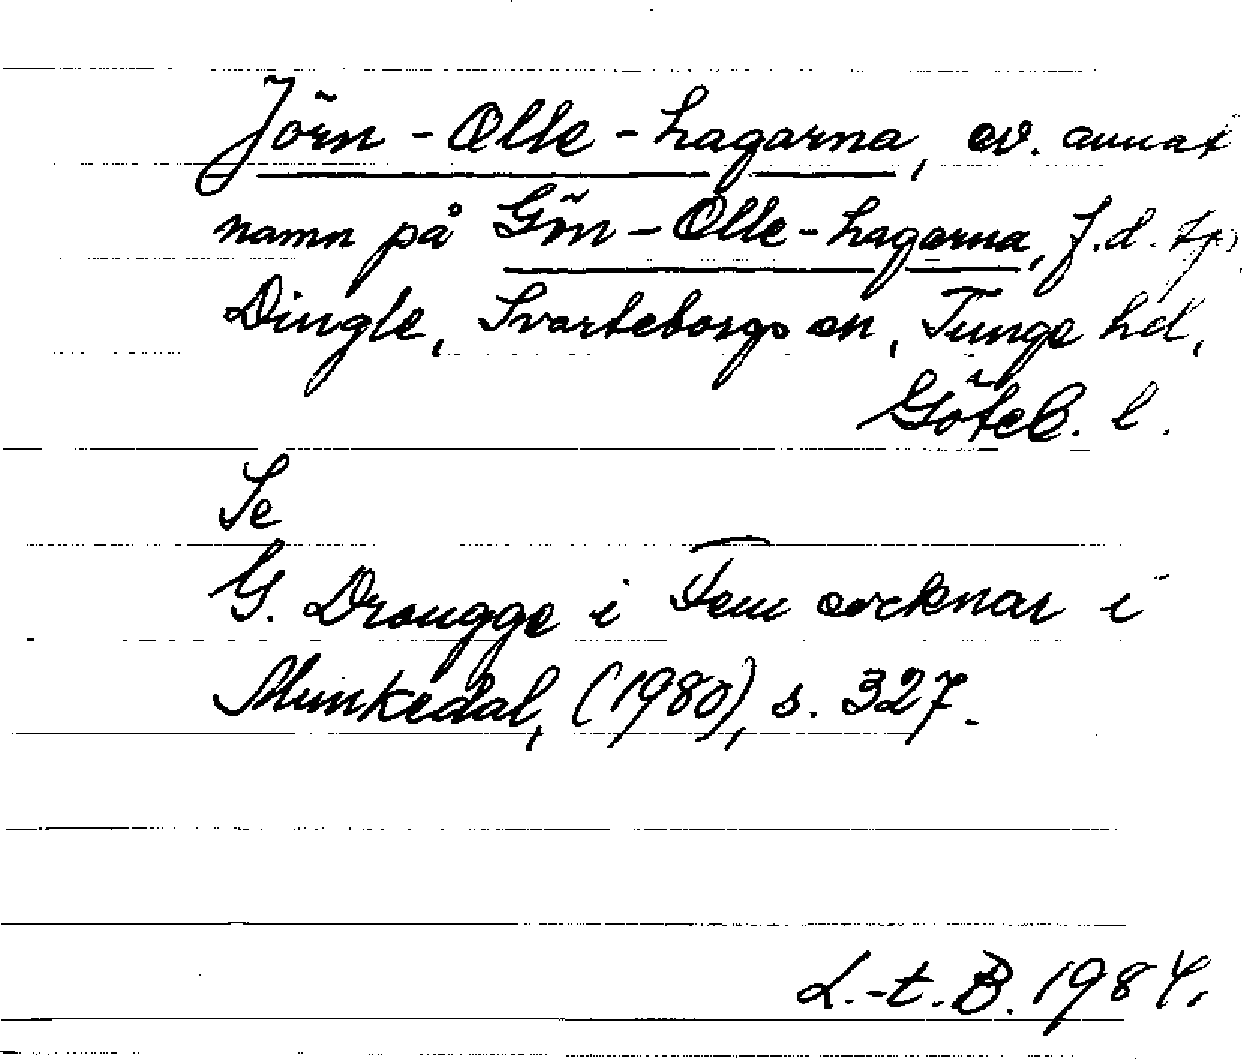 Jörn-Olle-hagarna, ev. annat
namn på Gön-Olle-hagarna, f.d. tp
Dingle, Svarteborgs sn, Tunge hd,
Göteb. l.
Se
G. Drougge i Fem socknar i
Munkedal, (1980), s. 327.
L.-t. B. 1984.